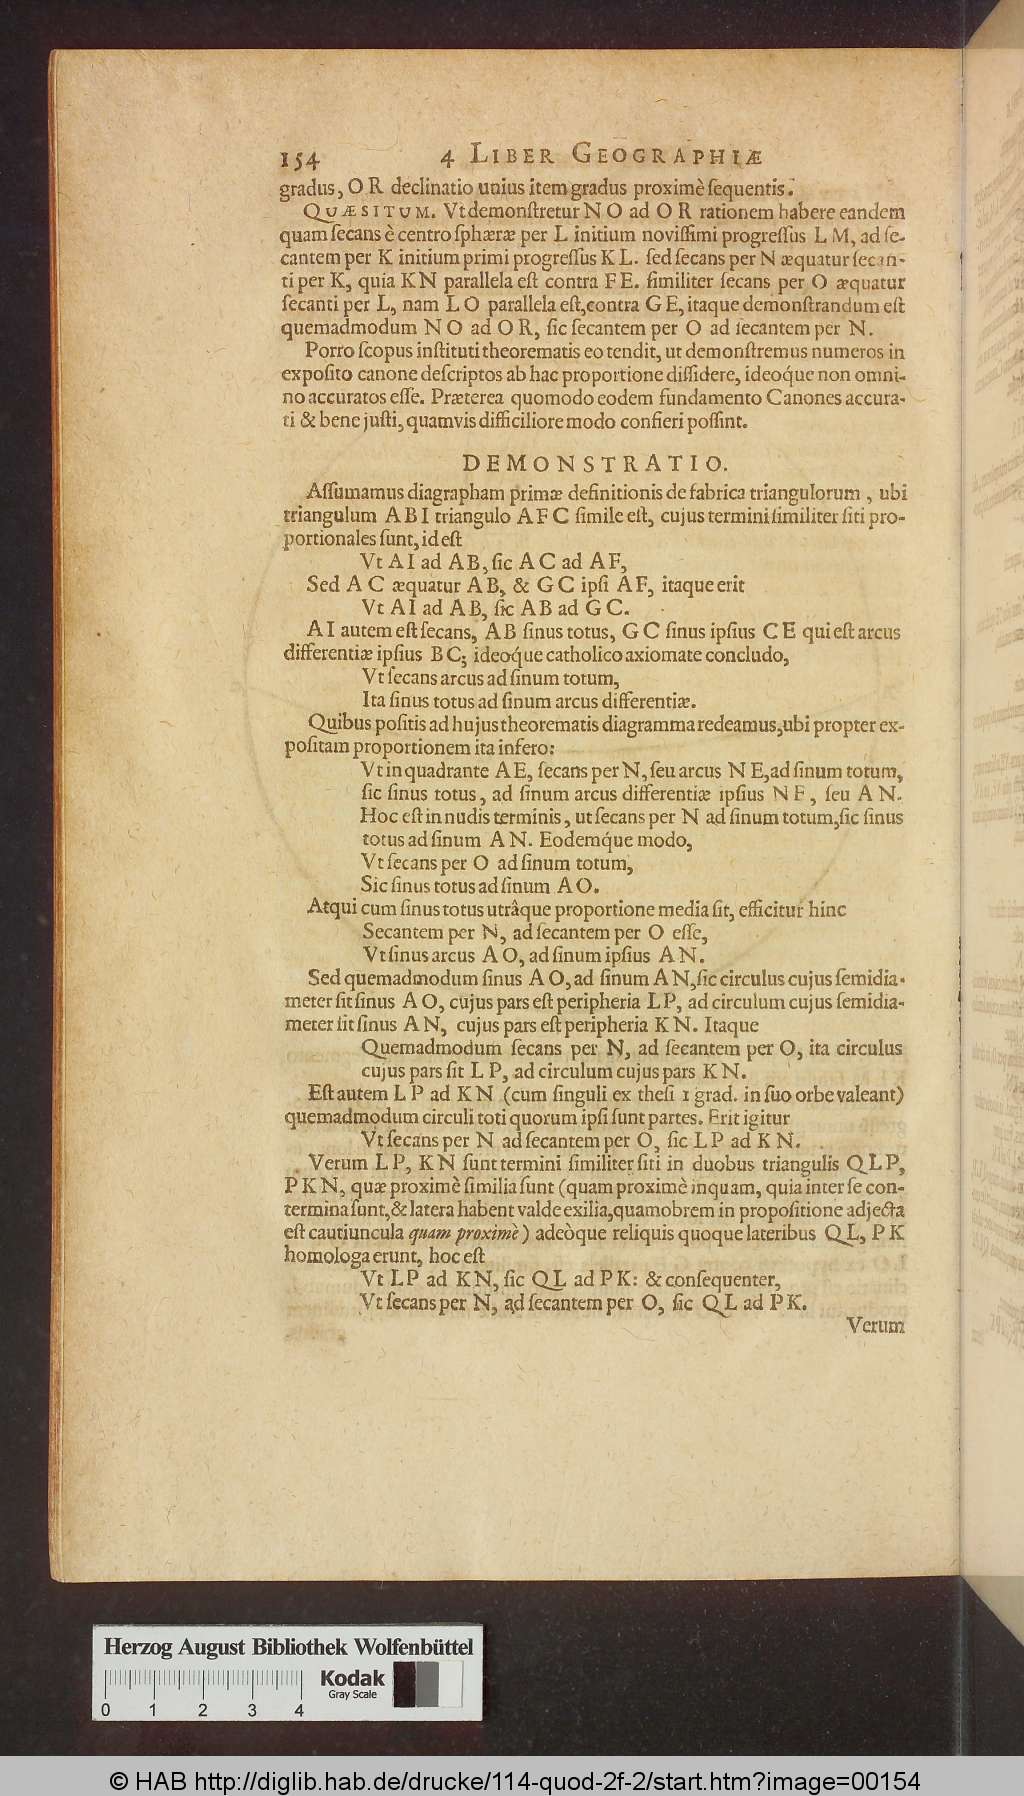 154 4 LIBER GEOGRAPHIÆ
gradus, OR declinatio unius item gradus proximè ſequentis.
QUÆSITUM. Vt demonſtretur NO ad OR rationem habere eandem
quam ſecans è centro ſphæræ per L initium noviſſimi progreſſus LM, ad ſe-
cantem per K initium primi progreſſus KL. ſed ſecans per N æquatur ſecan-
ti per K, quia KN parallela eſt contra FE. ſimiliter ſecans per O æquatur
ſecanti per L, nam LO parallela eſt, contra GE, itaque demonſtrandum eſt
quemadmodum NO ad OR, ſic ſecantem per O ad ſecantem per N.
Porro ſcopus inſtituti theorematis eo tendit, ut demonſtremus numeros in
expoſito canone deſcriptos ab hac proportione diſſidere, ideoq́ue non omni-
no accuratos eſſe. Præterea quomodo eodem fundamento Canones accura-
ti & bene juſti, quamvis difficiliore modo confieri poſſint.
DEMONSTRATIO.
Aſſumamus diagrapham primæ definitionis de fabrica triangulorum, ubi
triangulum ABI triangulo AFC ſimile eſt, cujus termini ſimiliter ſiti pro-
portionales ſunt, id eſt
Vt AI ad AB, ſic AC ad AF,
Sed AC æquatur AB, & GC ipſi AF, itaque erit
Vt AI ad AB, ſic AB ad GC.
AI autem eſt ſecans, AB ſinus totus, GC ſinus ipſius CE qui eſt arcus
differentiæ ipſius BC; ideoq́ue catholico axiomate concludo,
Vt ſecans arcus ad ſinum totum,
Ita ſinus totus ad ſinum arcus differentiæ.
Quibus poſitis ad hujus theorematis diagramma redeamus, ubi propter ex-
poſitam proportionem ita infero:
Vt in quadrante AE, ſecans per N, ſeu arcus NE, ad ſinum totum,
ſic ſinus totus, ad ſinum arcus differentiæ ipſius NE, ſeu AN.
Hoc eſt in nudis terminis, ut ſecans per N ad ſinum totum, ſic ſinus
totus ad ſinum AN. Eodemq́ue modo,
Vt ſecans per O ad ſinum totum,
Sic ſinus totus ad ſinum AO.
Atqui cum ſinus totus utrâque proportione media ſit, efficitur hinc
Secantem per N, ad ſecantem per O eſſe,
Vt ſinus arcus AO, ad ſinum ipſius AN.
Sed quemadmodum ſinus AO, ad ſinum AN, ſic circulus cujus ſemidia-
meter ſit ſinus AO, cujus pars eſt peripheria LP, ad circulum cujus ſemidia-
meter ſit ſinus AN, cujus pars eſt peripheria KN. Itaque
Quemadmodum ſecans per N, ad ſecantem per O, ita circulus
cujus pars ſit LP, ad circulum cujus pars KN.
Eſt autem LP ad KN (cum ſinguli ex theſi 1 grad. in ſuo orbe valeant)
quemadmodum circuli toti quorum ipſi ſunt partes. Erit igitur
Vt ſecans per N ad ſecantem per O, ſic LP ad KN.
Verum LP, KN ſunt termini ſimiliter ſiti in duobus triangulis QLP,
PKN, quæ proximè ſimilia ſunt (quam proximè inquam, quia inter ſe con-
termina ſunt, & latera habent valde exilia, quamobrem in propoſitione adjecta
eſt cautiuncula quam proximè) adeòque reliquis quoque lateribus QL, PK
homologa erunt, hoc eſt
Vt LP ad KN, ſic QL ad PK: & conſequenter,
Vt ſecans per N, ad ſecantem per O, ſic QL ad PK.
Verum
Herzog August Bibliothek Wolfenbüttel
Kodak
Gray Scale
0 1 2 3 4
© HAB http://diglib.hab.de/drucke/114-quod-2f-2/start.htm?image=00154